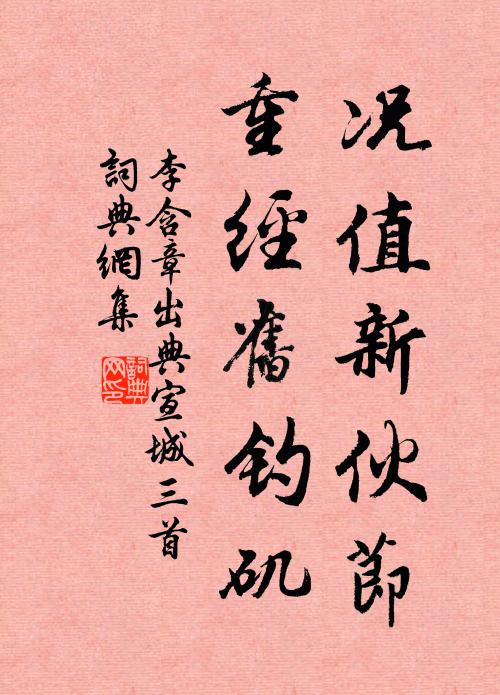 况值新伙節
重經舊钓矶
李含章出典宣城三首
詞典網集
詞典网印